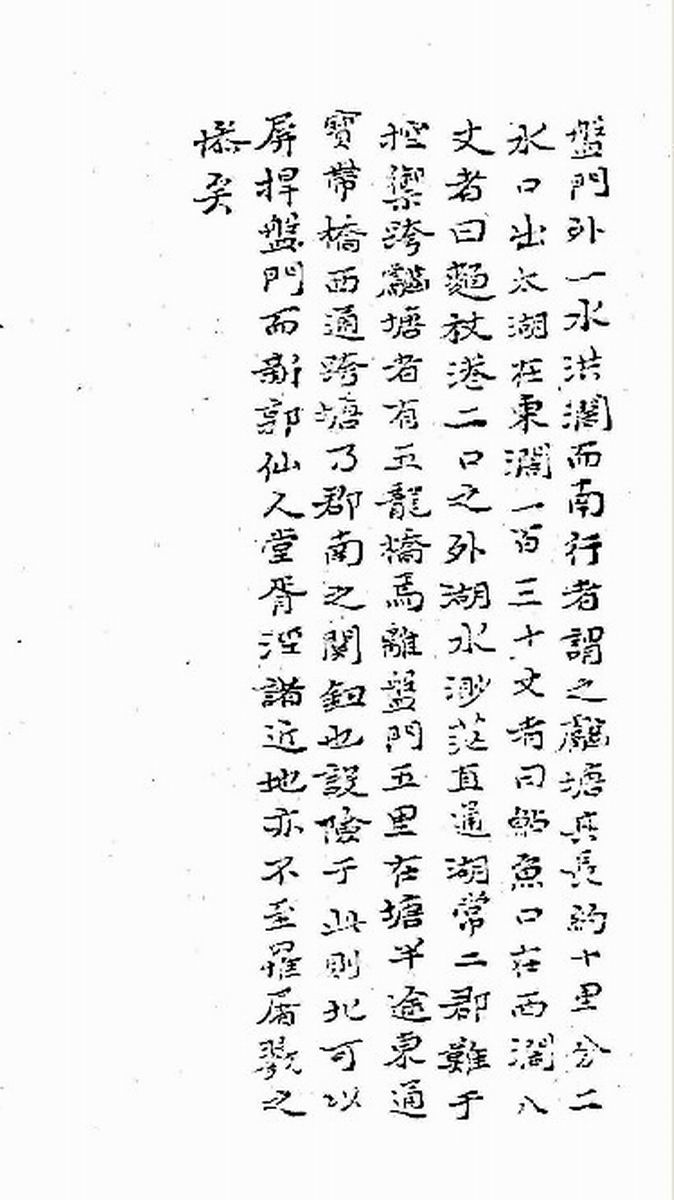 盤門外一水洪濶而南行者謂之蠡塘其長約十里分二
水口出太湖在東濶一百三十丈者曰鮎魚口在西濶八
丈者曰麵杖港二口之外湖水渺茫直通湖常二郡難于
控禦跨蠡塘者有五龍橋焉離盤門五里在塘半途東通
寶帶橋西通跨塘乃郡南之関鈕也設險于此則北可以
屏捍盤門而新郭仙人堂胥涇諸近地亦不至罹屠戮之
慘矣